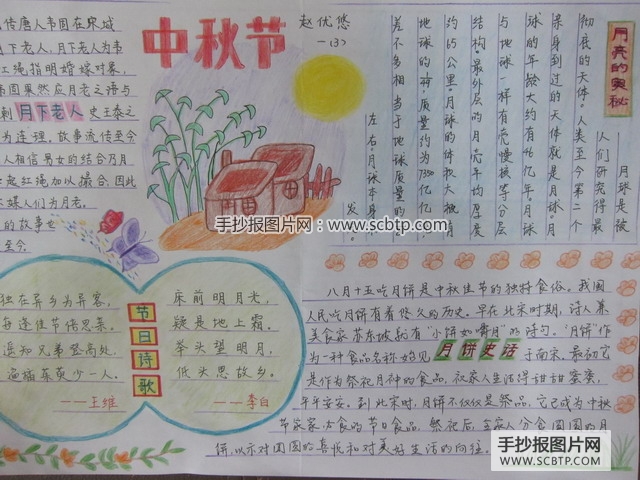 中秋节
赵优悠
一(3)
传唐人韦固在宋城
下老人,月下老人为韦
红绳指明婚嫁对象,
韦固果然应月老之语与
刺
月下老人
史王泰之
为连理。故事流传至今
人相信男女的结合乃月
红绳加以撮合,因此
媒人们为月老。
的故事也
至今
月亮的奥秘
月球是被
人们研究得最
彻底的天体。人类至今第二个
亲身到过的天体就是月球。月
球的年龄大约有46亿年。月球
与地球一样有壳、幔、核等分层
结构。最外层的月壳平均厚度
约65公里。月球的体积大概有
地球的
质量约为7350亿亿
差不多相当于地球质量的
左右。月球本身不
发
手抄报图片网:www.scbtp.com
独在异乡为异客,
每逢佳节倍思亲。
遥知兄弟登高处,
遍插茱萸少一人。
——王维
节日诗歌
床前明月光,
疑是地上霜。
举头望明月,
低头思故乡。
——李白
八月十五吃月饼是中秋佳节的独特食俗。我国
人民吃月饼有着悠久的历史。早在北宋时期,诗人兼
美食家苏东坡就有“小饼如嚼月”的诗句。“月饼”作
为一种食品名称始见
月饼史话
于南宋。最初它
是作为祭祀月神的食品,祝家人生活得甜甜蜜蜜,
平平安安。到北宋时,月饼不仅仅是祭品,它已成为中秋
节
家
食的节日食品,祭祀后,全家人分食圆圆的月
饼,以示对团圆的喜悦和对美好生活的向往。
手抄报图片网
WWW.SCBTP.COM